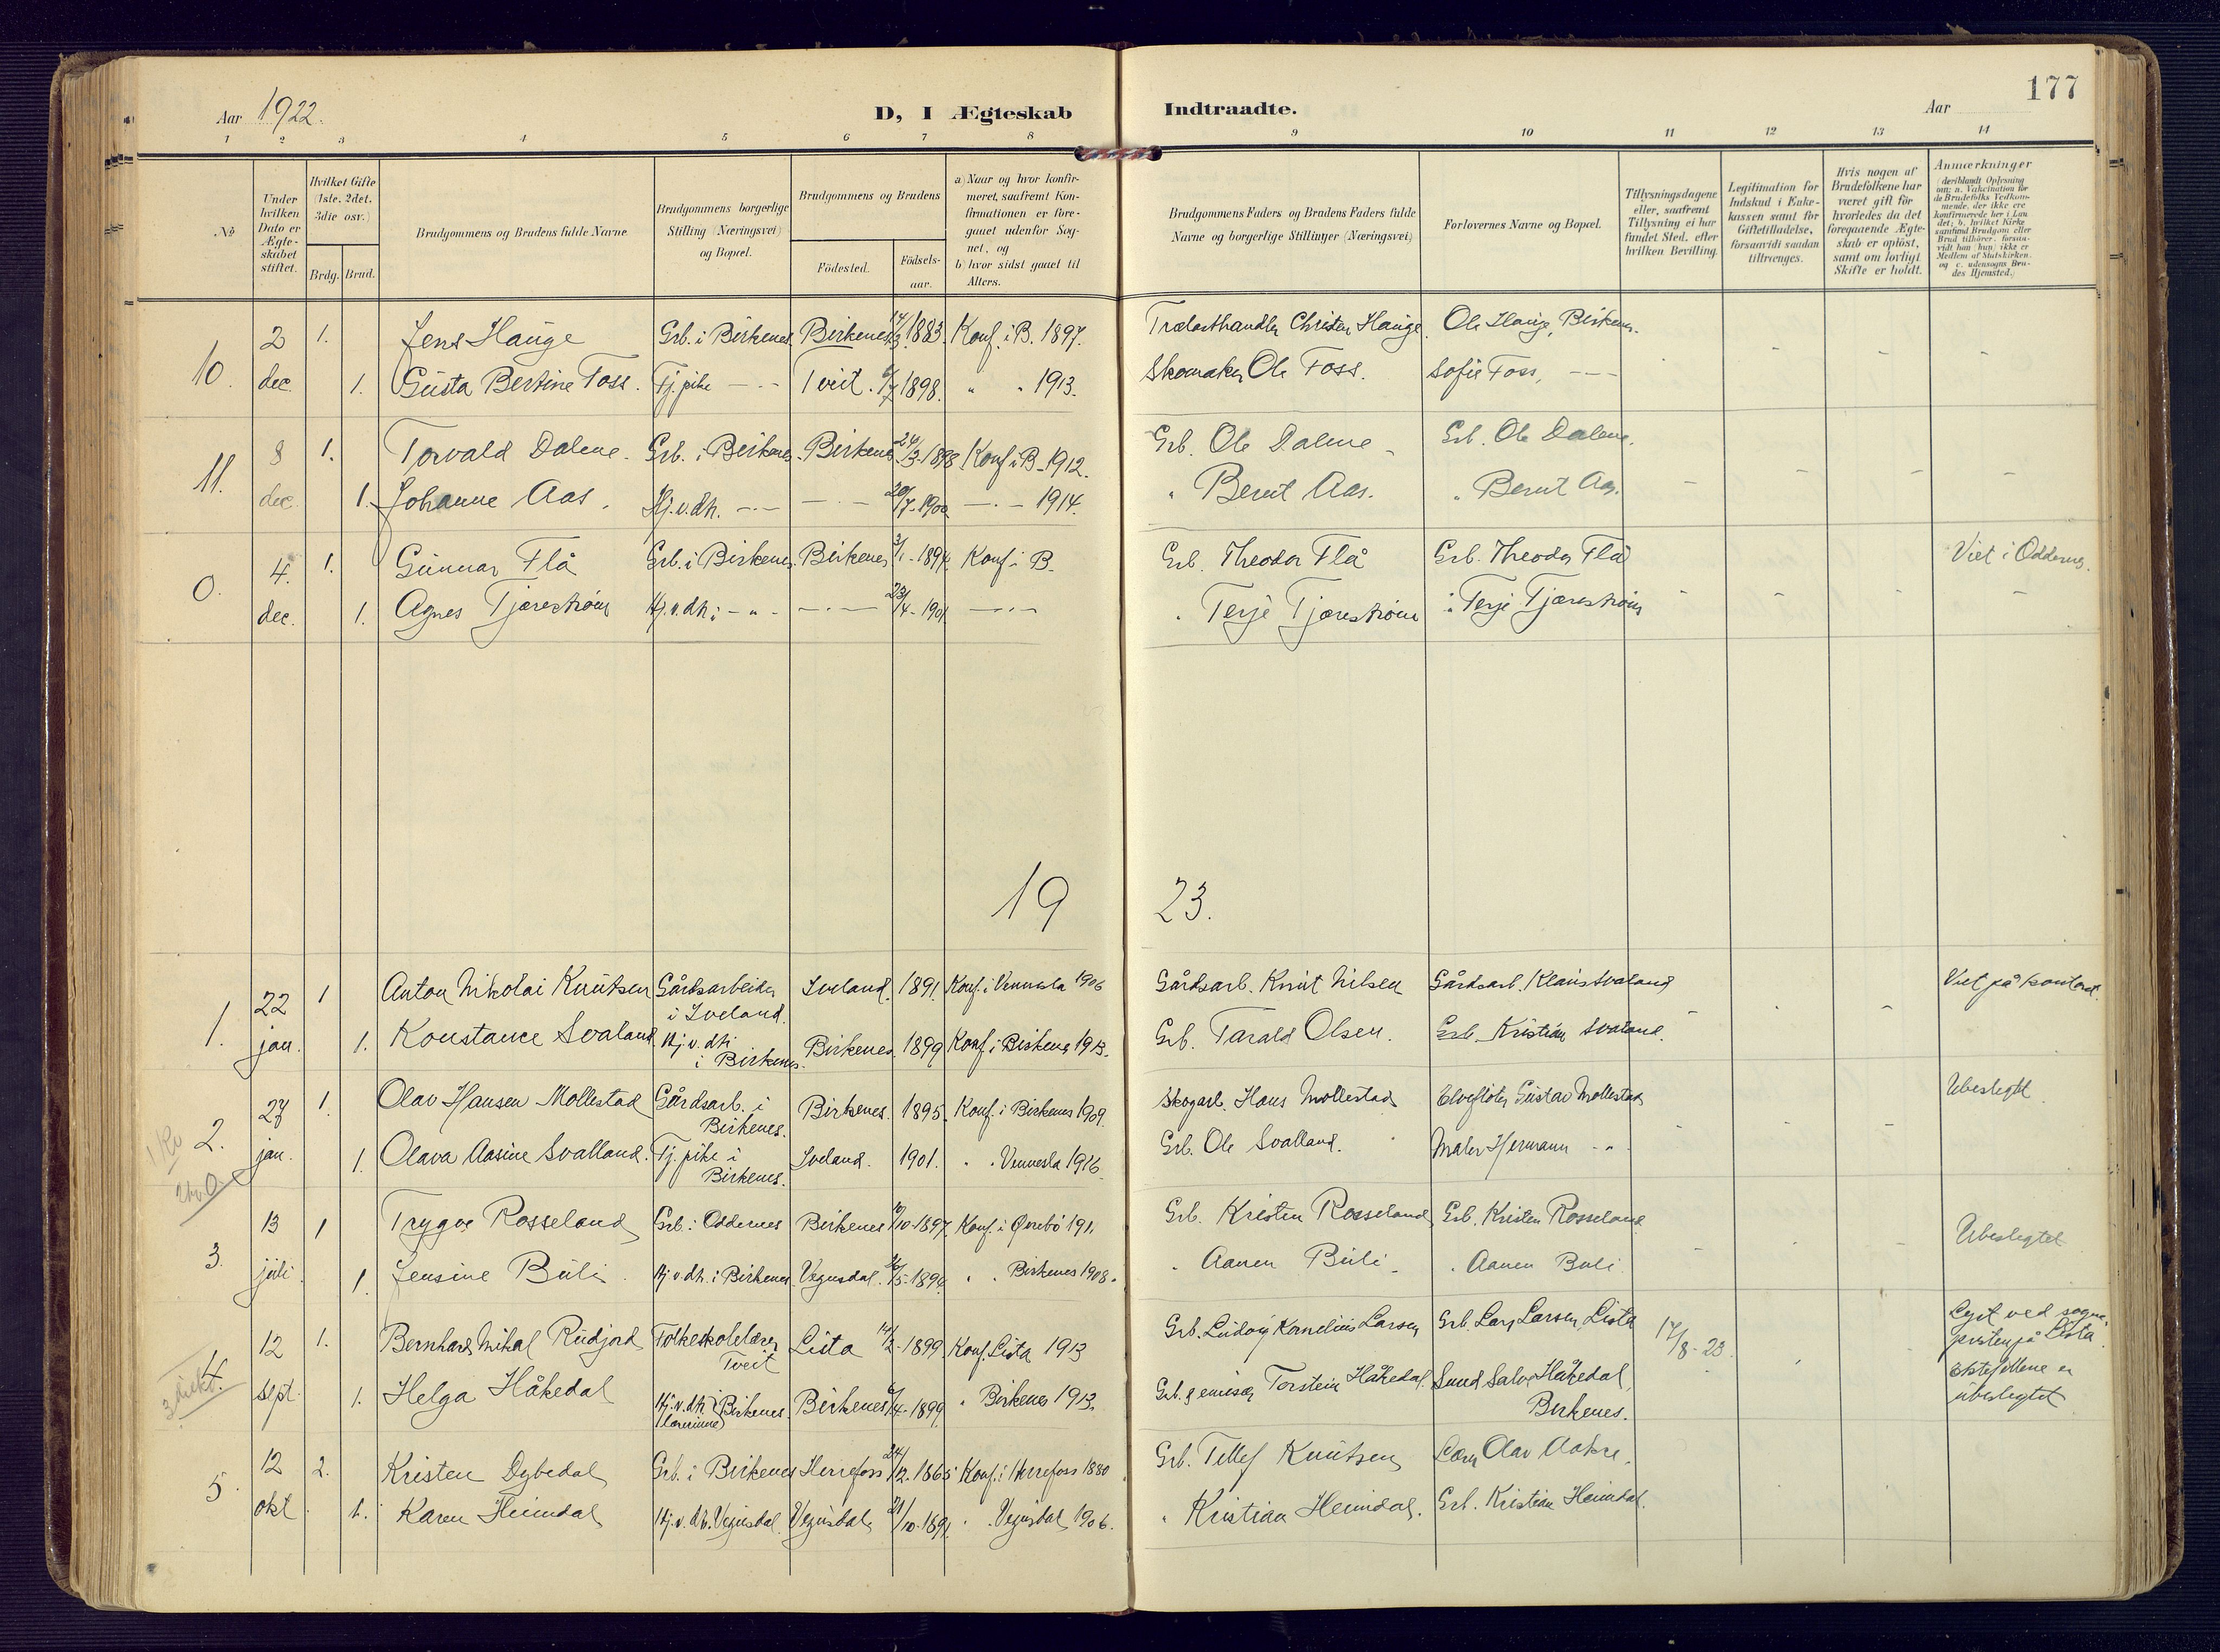 Aar 1922.
D, I Ægteskab Indtraadte.
Aar
177
1 2 3 4 5 6 7 8 9 10 11 12 13 14
No
Under hvilken Dato er Ægteskabet stiftet.
Hvilket Gifte (1ste. 2det. 3die osv.)
Brdg. Brud.
Brudgommens og Brudens fulde Navne
Brudgommens borgerlige Stilling (Næringsvei) og Bopæl.
Brudgommens og Brudens
Födested. Födselsaar.
a) Naar og hvor konfirmeret, saafremt Konfirmationen er foregaaet udenfor Sognet, og
b) hvor sidst gaaet til Alters.
Brudgommens Faders og Brudens Faders fulde Navne og borgerlige Stillinger (Næringsvei)
Forlovernes Navne og Bopæl.
Tillysningsdagene eller, saafremt Tillysning ei har fundet Sted, efter hvilken Bevilling.
Legitimation for Indskud i Enkekassen samt for Giftetilladelse, forsaavidt saadan tiltrænges.
Hvis nogen af Brudefolkene har været gift för hvorledes da det foregaaende Ægteskab er oplöst, samt om lovligt Skifte er holdt.
Anmærkninger (deriblandt Oplysning om: a. Vakcination for de Brudefolks Vedkommende, der ikke ere konfirmerede her i Landet; b. hvilket Kirkesamfund Brudgom eller Brud tilhörer, forsaavidt han (hun) ikke er Medlem af Statskirken, og c. udensogns Brudes Hjemsted.)
10. 2 dec. 1. Jens Hauge Grb. i Birkenes. Birkenes 1883. Konf. i B. 1897. Trælasthandler Christen Hauge. Ole Hauge, Birkenes.
1. Gusta Bertine Foss. Tj. pike Tveit. 1898. " " 1913. Skomaker Ole Foss. Sofie Foss,
11. 8 dec. 1. Torvald Dalene. Grb. i Birkenes. Birkenes 1898 Konf. i B. 1912. Grb. Ole Dalene Grb. Ole Dalene.
1. Johanne Aas. Hj.v.dh. 20/7-1900 1914. " Bernt Aas. " Bernt Aas.
0. 4. dec. 1. Gunnar Flå Grb. i Birkenes. Birkenes 3/1-1894 Konf. i B. Grb. Theodor Flå Grb. Theodor Flå Viet i Oddernes.
1. Agnes Tjærestrøm Hj.v.dh. i 23/4-1901 " Terje Tjærestrøm " Terje Tjærestrøm
19 23.
1. 22 jan. 1 Anton Nikolai Knutsen Gårdsarbeider i Iveland. Iveland. 1891. Konf. i Vennesla 1906 Gårdsarb. Knut Nilsen Gårdsarb. Klaus Svaland Viet på kontoret.
1. Konstance Svaland Hj.v.dh. i Birkenes. Birkenes. 1899 Konf. i Birkenes 1913. Grb. Tarald Olsen. Grb. Kristian Svaland.
2. 27 jan. 1. Olav Hansen Mollestad Gårdsarb. i Birkenes. Birkenes. 1895. Konf. i Birkenes 1909. Skogarb. Hans Mollestad Elvefløter Gustav Mollestad Ubeslegtet
1. Olava Aasine Svalland. Tj. pike i Birkenes. Iveland. 1901. " " Vennesla 1916. Grb. Ole Svalland. Maler Hermann - " -
3. 13 juli 1 Trygve Rosseland Grb. i Oddernes Birkenes /10-1897. Konf. i Øvrebø 1911. Grb. Kristen Rosseland Grb. Kristen Rosseland Ubeslegtet
1. Jensine Buli. Hj.v.dh. i Birkenes. Vegusdal. /5-1894. " " Birkenes 1908. " Aanen Buli. " Aanen Buli
4. 12 sept. 1. Bernhard Mikal Rudjord Folkeskolelærer Tveit Lista 1899. Konf. Lista 1913 Grb. Ludvig Kornelius Larsen Grb. Lars Larsen, Lista 17/8-23. Lyst ved sognepresten på Lista.
1. Helga Håkedal Hj.v.dh. i Birkenes. (lærerinne) Birkenes /4-1899. " Birkenes 1913. Grb. & emisær Torstein Håkedal. Salve Håkedal, Birkenes. Ektefellene er ubeslegtet
5. 12 okt. 2. Kristen Dybedal Grb. i Birkenes Herrefoss 24/12-1865 Konf. i Herrefoss 1880 Grb. Tellef Knutsen Lærer Olav Aakre.
1. Karen Heimdal Hj.v.dh. Vegusdal. Vegusdal. 21/10-1891. " Vegusdal 1906. " Kristian Heimdal. Grb. Kristian Heimdal.